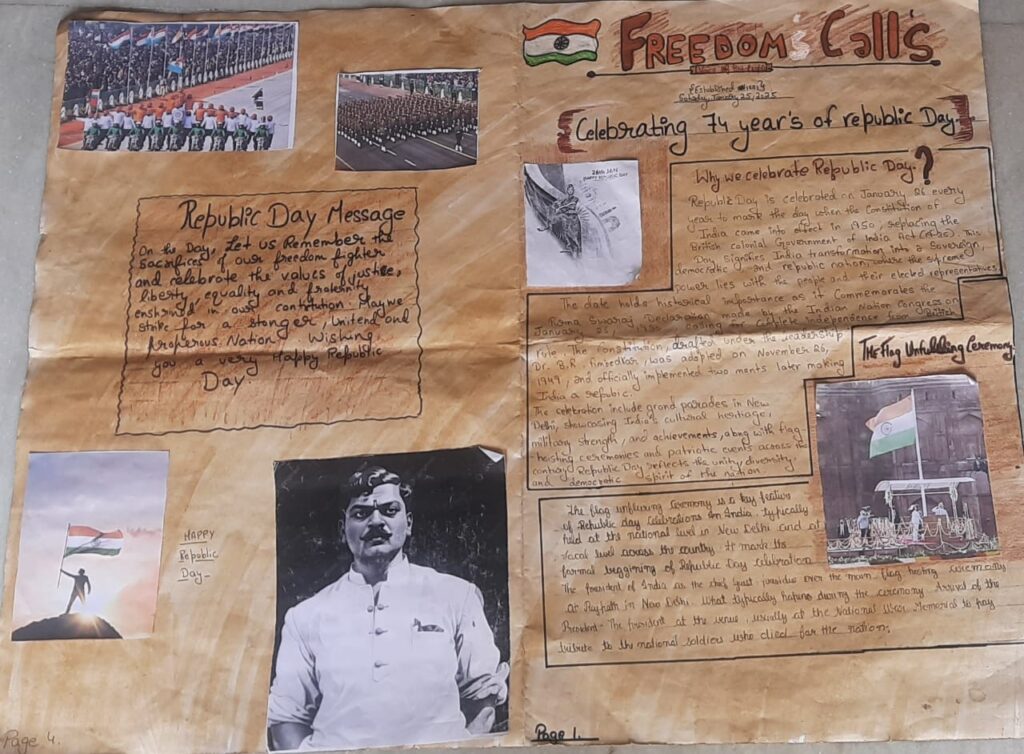 Republic Day Message
On the Day, Let us Remember the
Sacrifices of our freedom fighter
and celebrate the values of justice,
liberty, equality and fraternity
enshrined in our contitution. May we
strike for a stonger, unitend and
Properius. Nation Wishing
you a very Happy Republic
Day.
HAPPY
Republic
Day-
Page 4.
FREEDOM's Call's
Established
Saturday, January 25, 2025
Celebrating 74 year's of republic Day.
Why we celebrate Republic Day.?
Republic Day is celebrated on January 26 every
year to mark the day when the constitution of
India came into effect in 1950, replacing the
British colonial Government of India Act (1935). This
Day signifies India transformation into a Sovereign,
democratic and republic nation, where the supreme
power lies with the people and their elected representatives
The date holds historical importance as it Commemorates the
Purna Swaraj Declaration made by the Indian Nation Congress on
January 1930 calling for complete independence from British
rule. The Constitution, drafted under the leadership
Dr. B.R. Ambedkar, was adopted on November 26,
1949, and officially implemented two monts later making
India a republic.
The celebration include grand parades in New
Delhi, showcasing India's cultural heritage,
military strength, and achievements, along with flag-
hoisting ceremonies and patriotic events across the
contury Republic Day reflects the unity, diversity,
and democratic spirit of the nation
The Flag Unfurling Ceremony
The flag unfurling Ceremony is a key feature
of Republic day Celebrations in India, typically
held at the national level in New Delhi and at
local level across the country. It mark the
formal beggining of Republic Day Celebration
The President of India as the chief guest, presides over the main flag hosting ceremony
at Rajpath in New Delhi. What typically hapens during the ceremony Arrival of the
President- The President at the venue, usually at the National War Memorial to pay
tribute to the national soldiers who died for the nation.
Page 1.